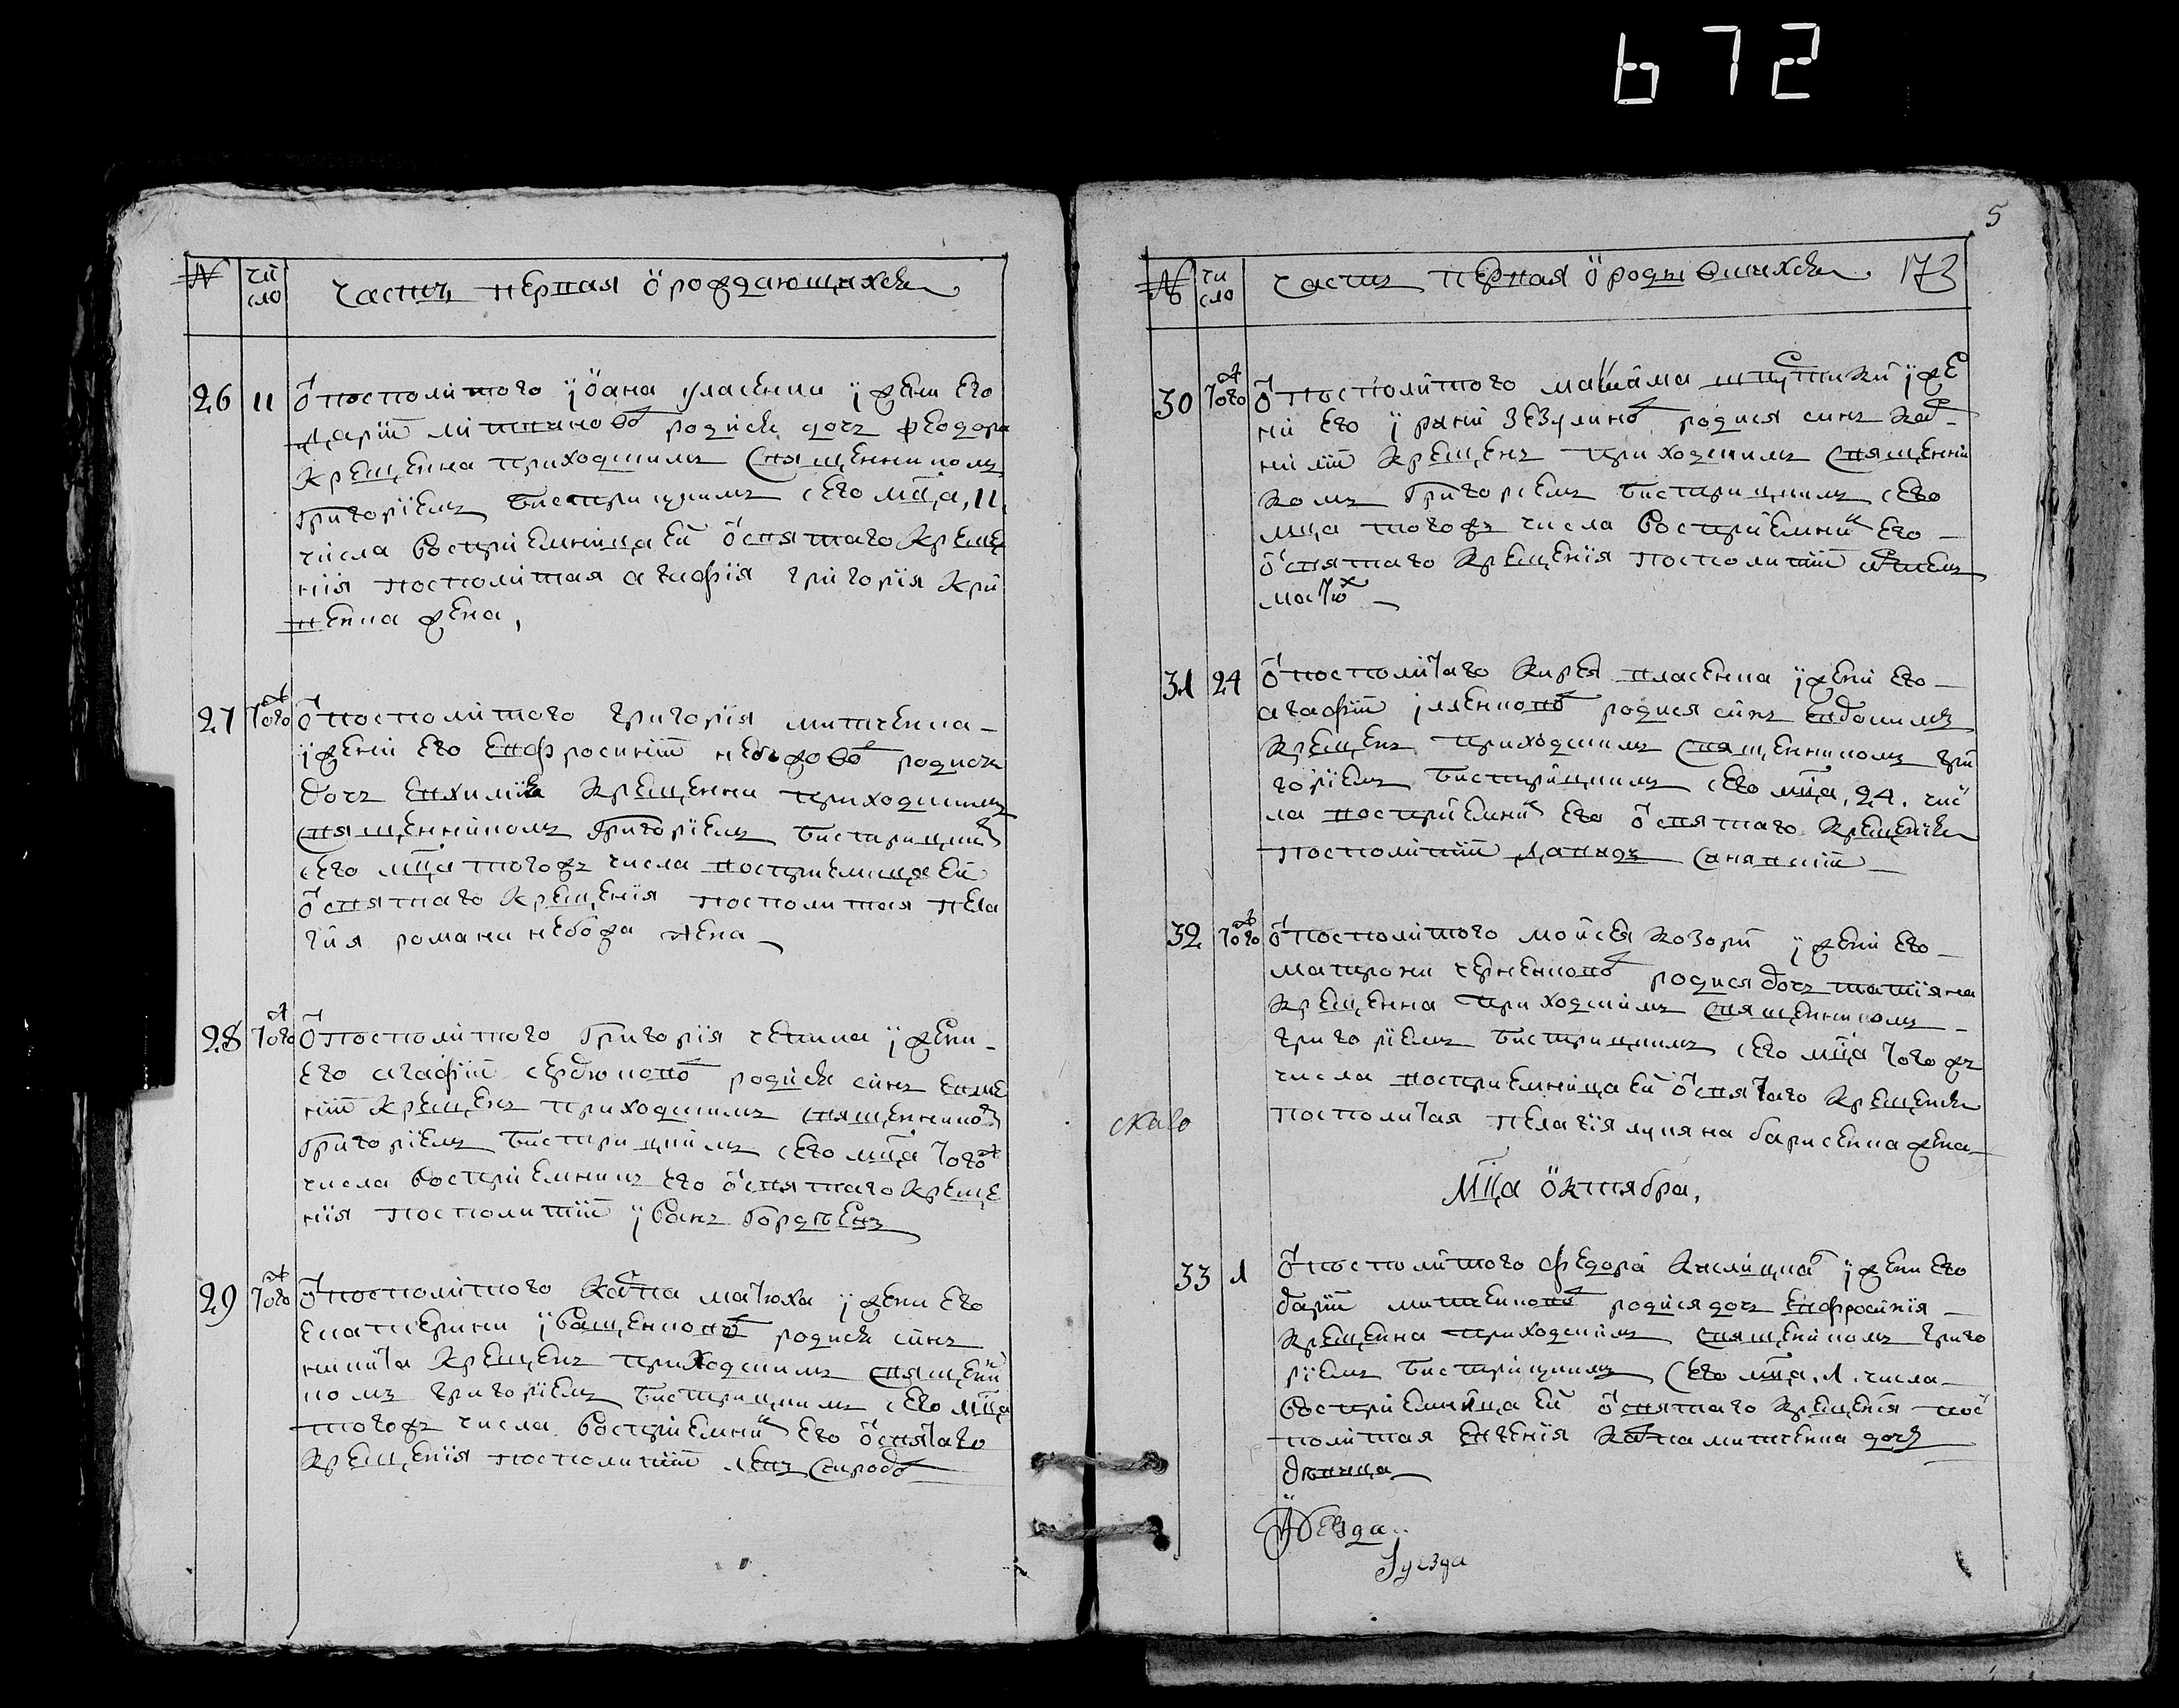 672
№ чи сло Часть первая о рождающихся
26 11 Ѿ посполитого іоана уласенка і жени его
дарїи литвиновой родися дочь феодора
крещенна приходским священником
григорїем Бистрицким сего мца, 11,
числа восприемница ей ѿ святаго креще
нїя посполитая агафїя григорїя кри
венка жена,
27 Тогож Ѿ посполитого григорїя митченка
і жени его евфросинїи небожовой родися
дочь евхимїя крещенна приходским
священником григорїем Бистрицким
сего мца тогож числа восприемница ей
ѿ святаго крещенїя посполитая пела
гия романа небожа жена
28 Тогож Ѿ посполитого григорїя і жени
его агафїи сердюковой родися синь евме
нїи крещень приходским священником
григорїем Бистрицким сего мца тогож
числа восприемник его ѿ святаго креще
нїя посполитїи івань гордѣенъ
29 Тогож Ѿ посполитого карпа матюха і жени его
екатерини іващенковой родися синь
никита крещень приходским священи
ком григорїем Бистрицким сего мца
тогож числа восприемник его ѿ святаго
крещенїя посполитїи
5
№ чи сло Часть первая о родившихся 173
30 Тогож Ѿ посполитого максима і же
ни его ірини зезулиной родися синь кор
нилїи крещень приходским священни
ком григорїем Бистрицким сего
мца тогож числа восприемник его
ѿ святаго крещенїя посполитїи
матюх
31 24 Ѿ посполитаго кирея власенка і жени его
агафїи іляенковой родися синь евдоким
крещень приходским священником гри
горїем Бистрицким сего мца, 24. чис
ла восприемник его ѿ святаго крещенїя
посполитїи давидъ
32 Тогож Ѿ посполитого мойсея козори і жени его
матрони черненковой родися дочь татїяна
крещенна приходским священником
григорїем Бистрицким сего мца тогож
числа восприемница ей ѿ святаго крещенїя
посполитая пелагїя лукяна барисенка жена
Мца Октября,
33 1 Ѿ посполитого федора кислицкаго і жени его
дарїи митченковой родися дочь евфросинїя
крещенна приходским священиком григо
рїем Бистрицким сего мца, 1. числа
восприемница ей ѿ святаго крещенїя пос
политая евгенїя карпа митченка дочь
дѣвица
уезда